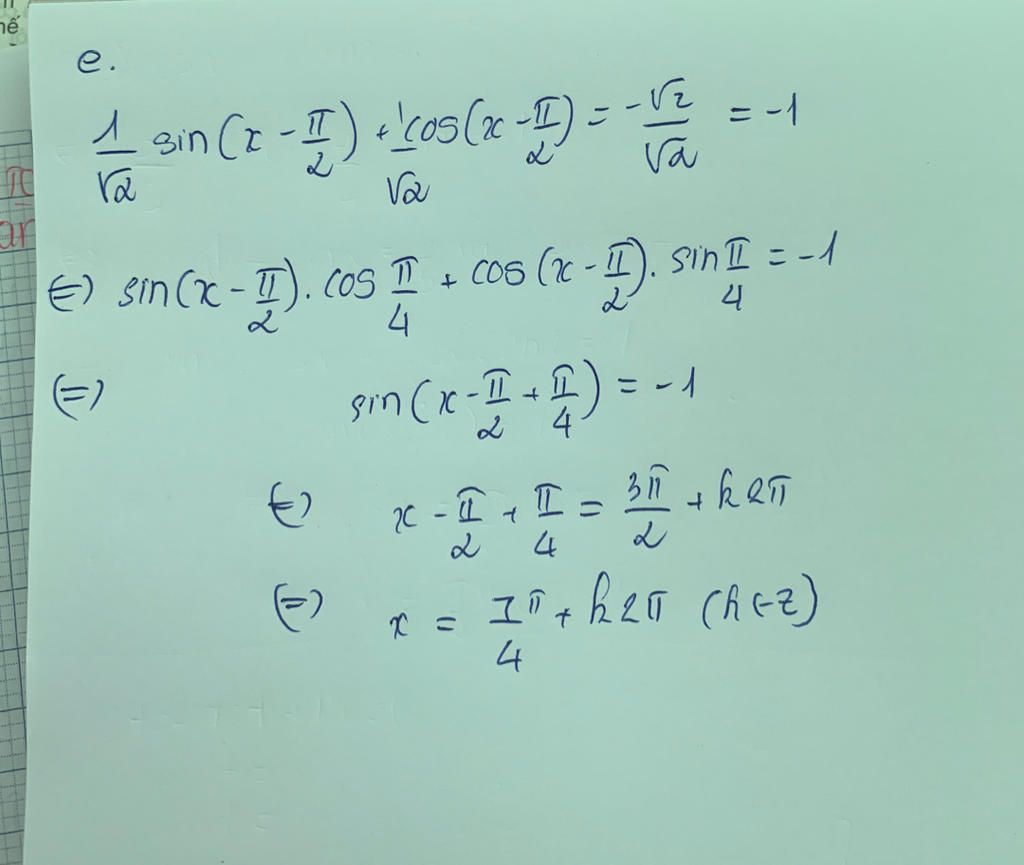 hế
π
ar
e.
1/√2 sin(x - π/2) + 1/√2 cos(x - π/2) = -√2/√2 = -1
⇔ sin(x - π/2). cos π/4 + cos(x - π/2). sin π/4 = -1
⇔ sin(x - π/2 + π/4) = -1
⇔ x - π/2 + π/4 = 3π/2 + k2π
⇔ x = 7π/4 + k2π (k ∈ Z)